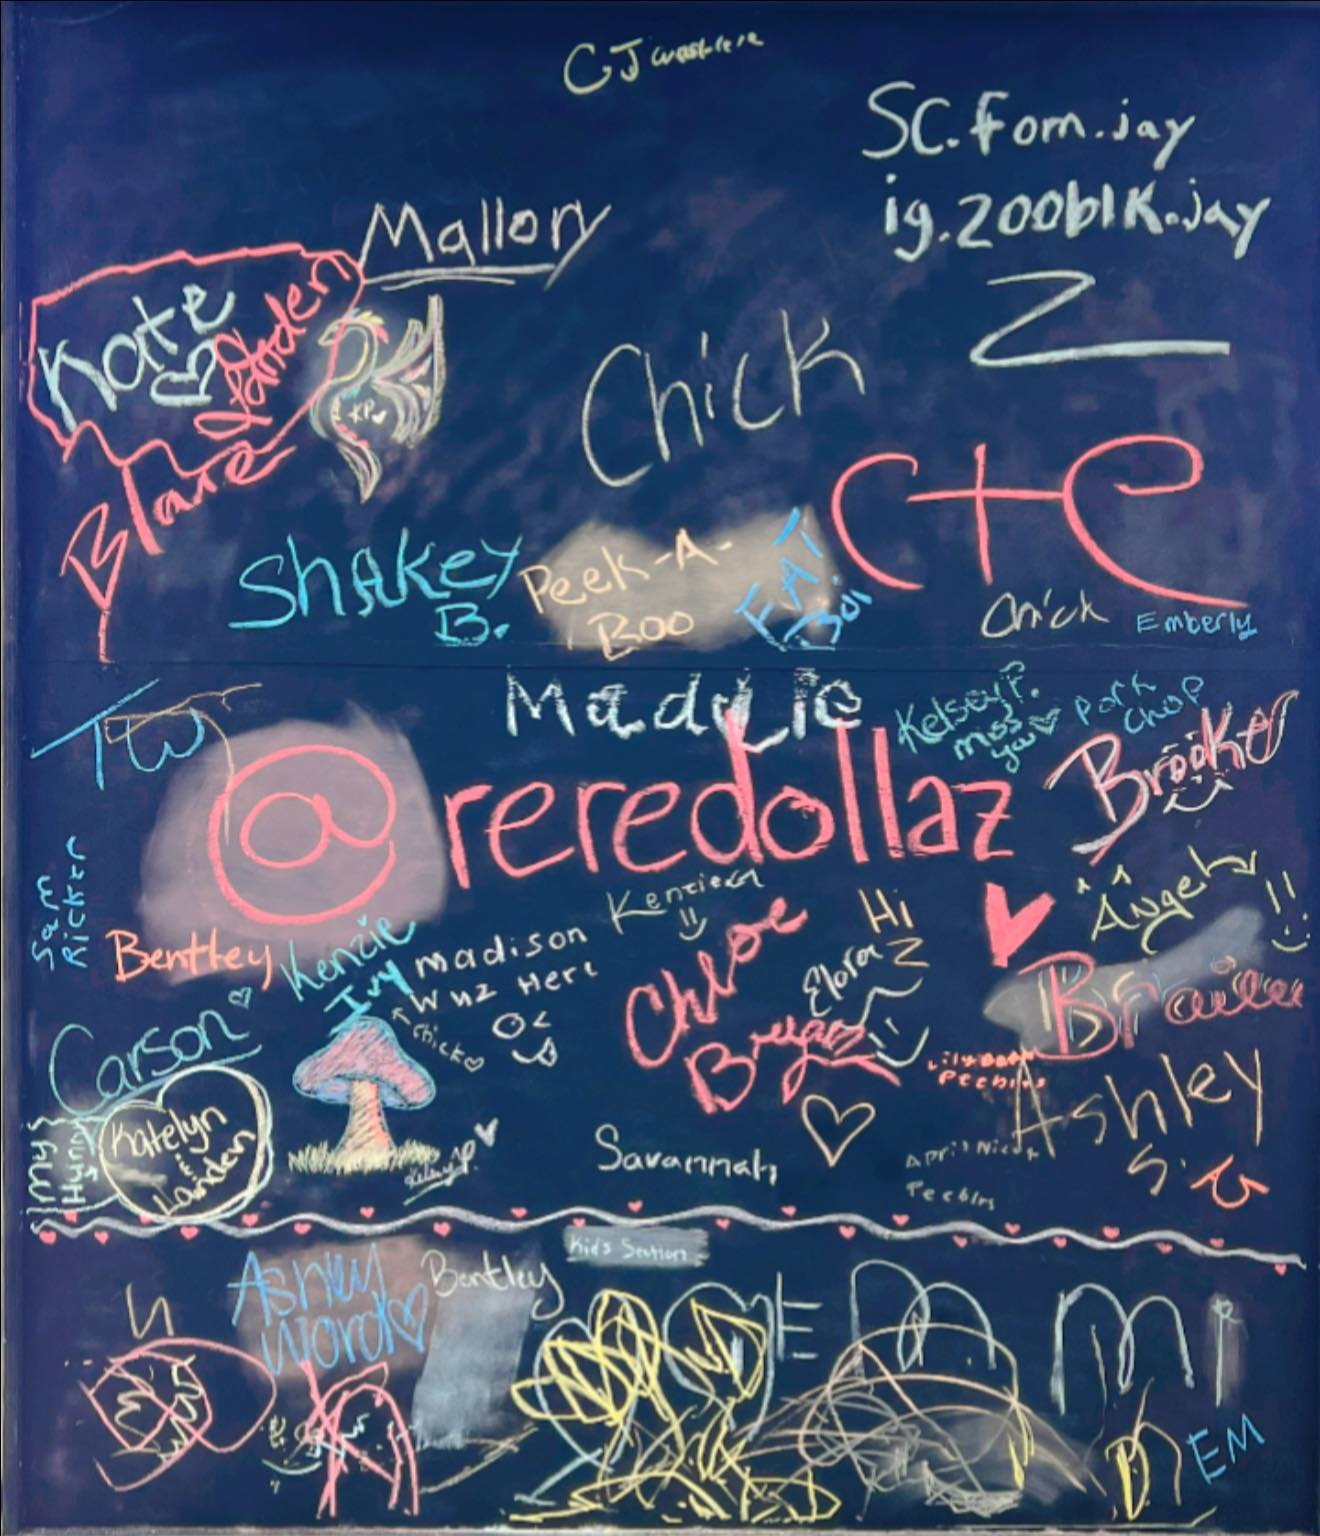 CJ was here
SC.fom.jay
ig.200blk.jay
Mallory
Kate
Landen
Z
KP
Chick
Blare
C+e
Shakey
B.
Peek-A-
Boo
EAT
Boi
Chick
Emberly
TW
Madylie
Kelsey P.
miss
you
Pork
Chop
Brooker
@reredollaz
Sam
Ricker
Kenzie
Angel
Hi
Z
Chloe
Bentley
Kenzie
Ivy
Madison
Wuz Here
Chick
Elora
Carson
Bryan
Peebles
Ashley
S.
My
Hunny
Katelyn
Landen
Kelsey P.
Savannah
April Nicole
Peebles
Kid's Section
Ashley
Word
Bentley
EM